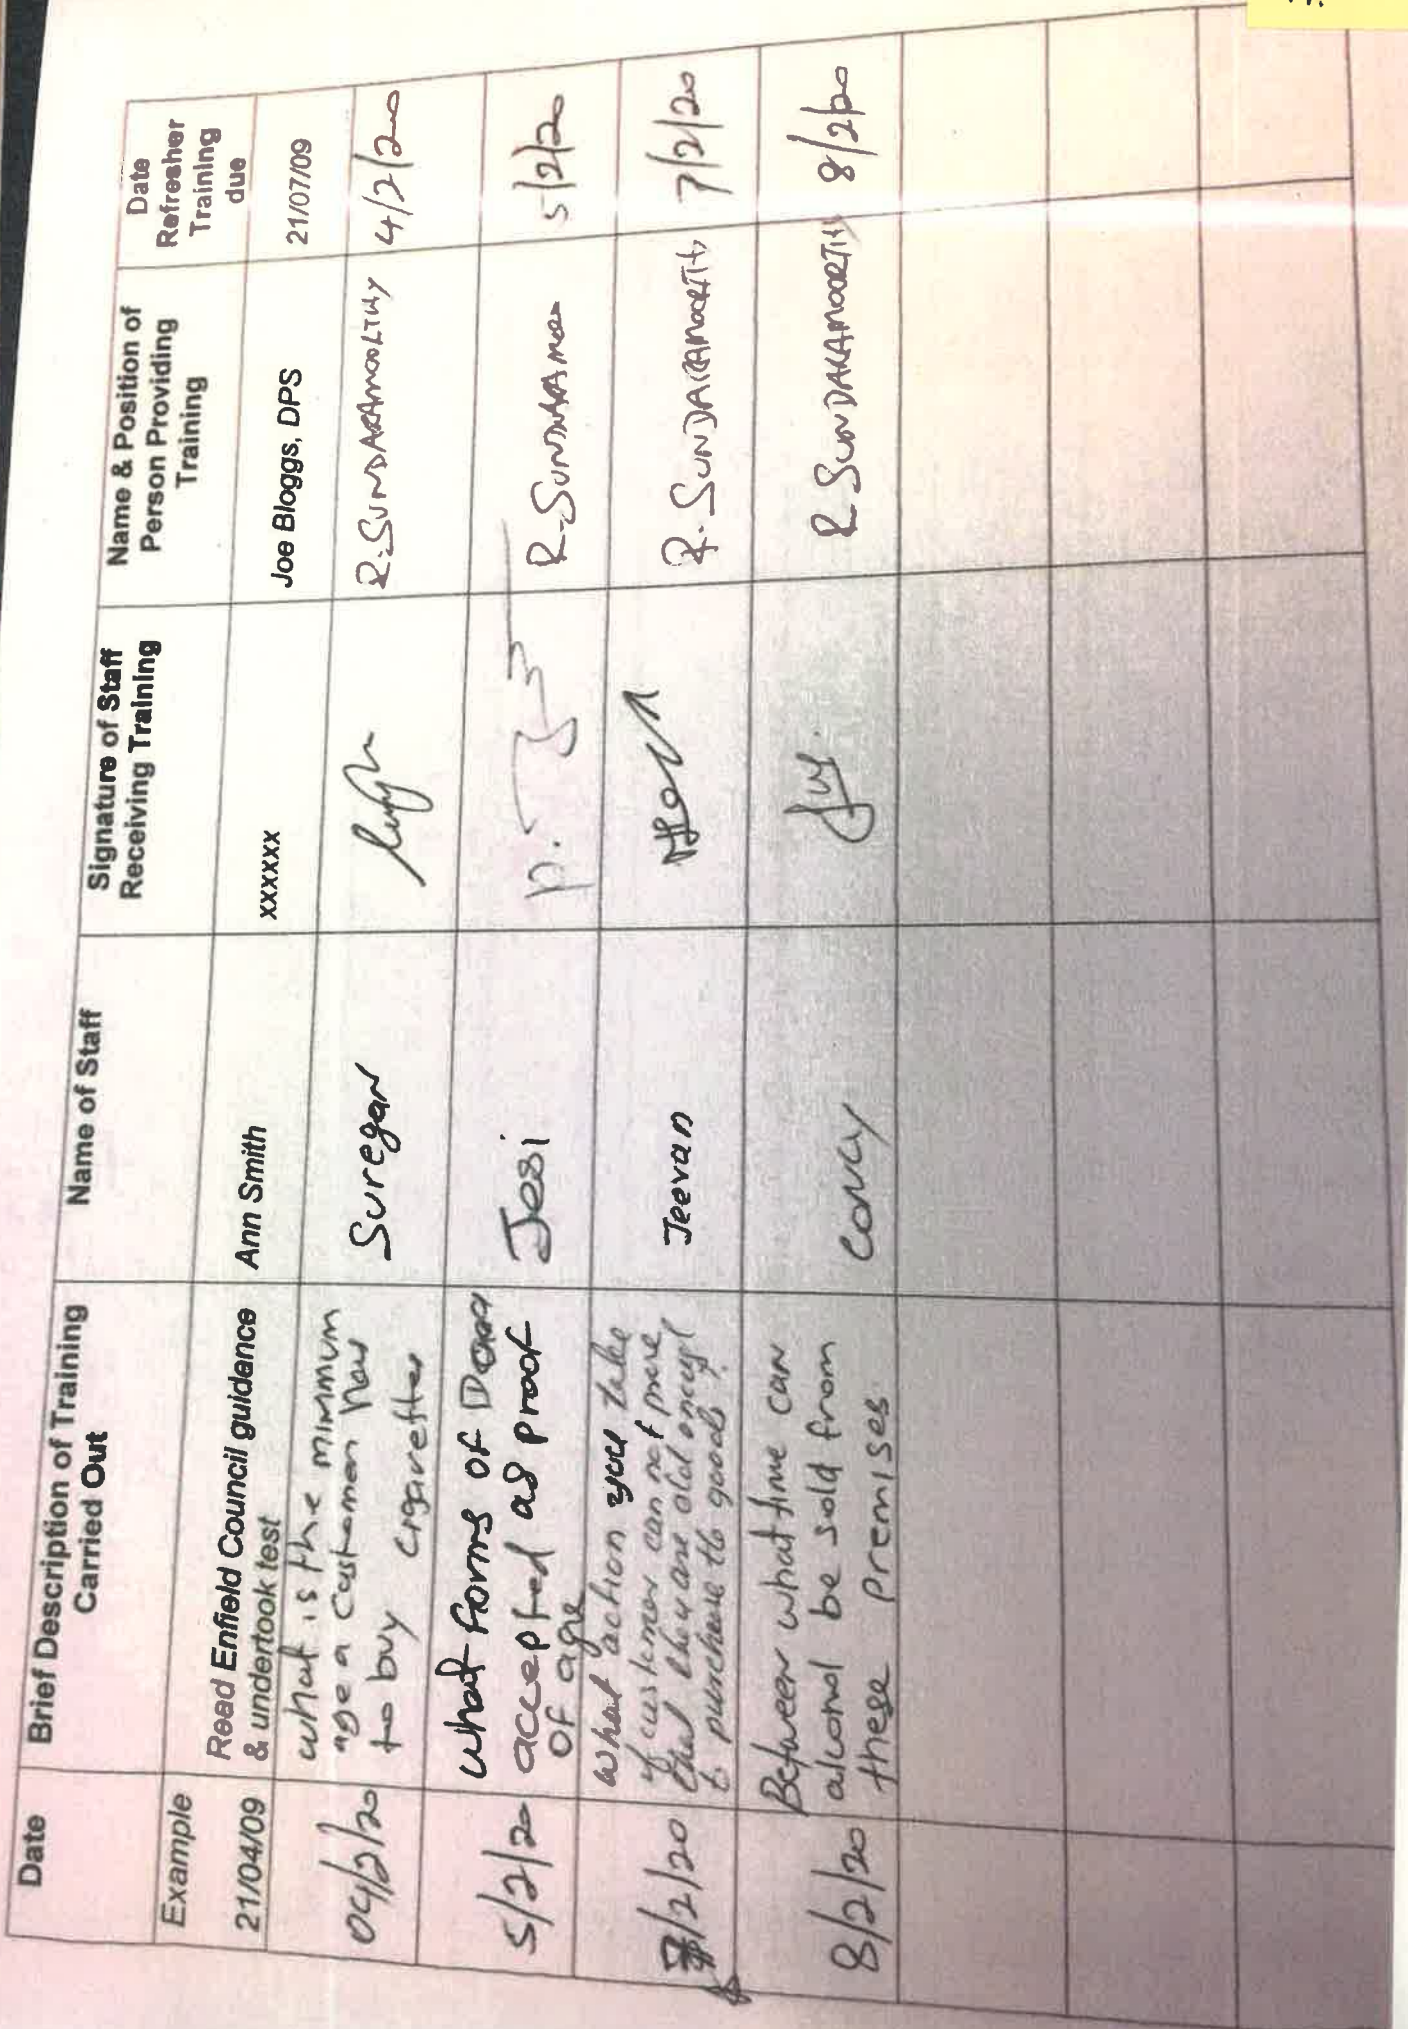 Date
Brief Description of Training
Carried Out
Name of Staff
Signature of Staff
Receiving Training
Name & Position of
Person Providing
Training
Date
Refresher
Training
due
Example
21/04/09
Read Enfield Council guidance
& undertook test
Ann Smith
xxxxxx
Joe Bloggs, DPS
21/07/09
04/2/20
what is the minimum
age a customer have
to buy cigarettes
Suregan
R. SUNDARAMOORTHY
4/2/20
5/2/20
what forms of
accepted as proof
of age
Jesi
R. SUNDARAMOO
5/2/20
7/2/20
what action you take
if customer can not prove
that they are old enough
to purchase the goods?
Jeevan
R. SUNDARAMOORTHY
7/2/20
8/2/20
Between what time can
alcohol be sold from
these premises
R SUNDARAMOORTHY
8/2/20